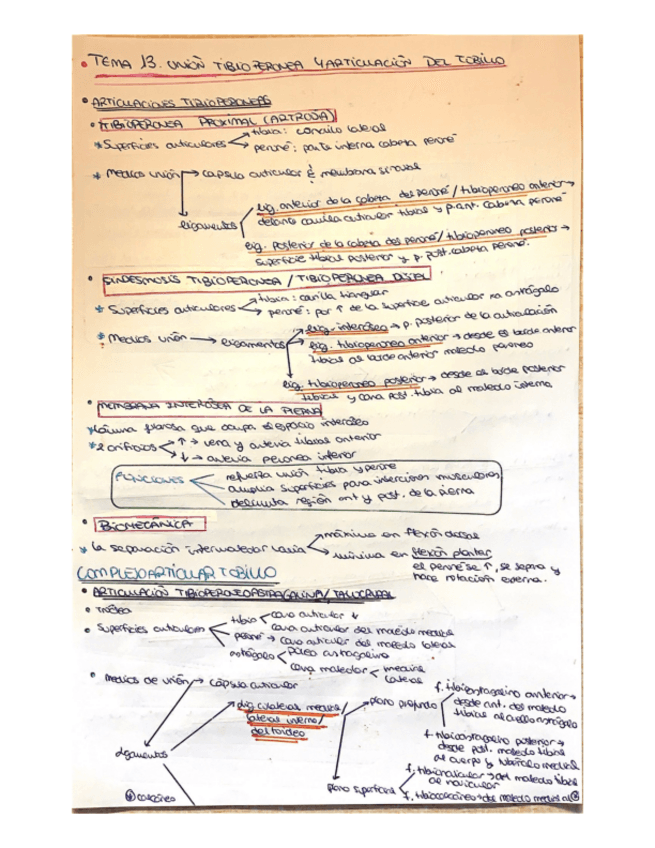 TEMA 13. UNIÓN TIBIOPERONEA Y ARTICULACIÓN DEL TOBILLO
ARTICULACIONES TIBIOPERONEAS
TIBIOPERONEA PROXIMAL (ARTRODIA)
* Superficies articulares
tibia: cóndilo lateral
peroné: parte interna cabeza peroné
* Medios unión → cápsula articular é membrana sinovial
ligamentos
lig. anterior de la cabeza del peroné / tibioperoneo anterior →
delante carilla articular tibial y p. ant. cabeza peroné
lig. posterior de la cabeza del peroné / tibioperoneo posterior →
superficie tibial posterior y p. post. cabeza peroné.
SINDESMOSIS TIBIOPERONEA / TIBIOPERONEA DISTAL
* Superficies articulares
tibia: carilla triangular
peroné: por ↑ de la superficie articular astrágalo
* Medios unión → ligamentos
lig. interóseo → p. posterior de la articulación
lig. tibioperoneo anterior → desde el borde anterior
tibial al borde anterior maleolo peroneo
lig. tibioperoneo posterior → desde el borde posterior
tibial y cara post. tibia al maleolo
MEMBRANA INTERÓSEA DE LA PIERNA
* lámina fibrosa que ocupa el espacio interóseo
* 2 orificios
↑ → vena y arteria tibial anterior
↓ → arteria peronea inferior
FUNCIONES
refuerza unión tibia y peroné
amplia superficies para inserciones musculares
delimita región ant y post. de la pierna
BIOMECÁNICA
* la separación intermaleolar varia
máxima en flexión dorsal
mínima en flexión plantar
el peroné se ↑, se separa y
hace rotación externa.
COMPLEJO ARTICULAR TOBILLO
ARTICULACIÓN TIBIOPERONEOASTRAGALINA / TALOCRURAL
Tróclea
Superficies articulares
tibia
cara articular ↓
cara articular del maleolo medial
peroné → cara articular del maleolo lateral
astrágalo
polea astragalina
cara maleolar
medial
lateral
Medios de unión → cápsula articular
ligamentos
lig. colateral medial /
lateral interno /
deltoideo
plano profundo
f. tibioastragalino anterior →
desde ant. del maleolo
tibial al cuello astrágalo
f. tibioastragalino posterior →
desde post. maleolo tibial
al cuerpo y tubérculo medial
plano superficial
f. tibionavicular → maleolo tibial
al navicular
f. tibiocalcáneo → del maleolo medial al
calcáneo